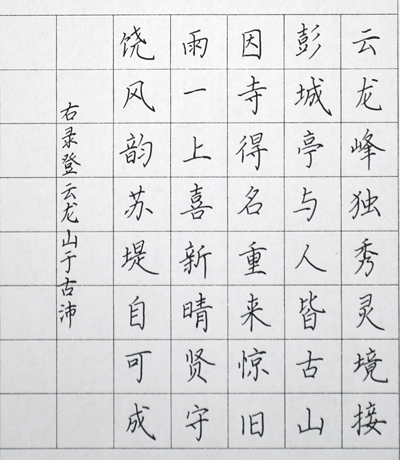 云龙峰独秀灵境接
彭城亭与人皆古山
因寺得名重来惊旧
雨一上喜新晴贤守
饶风韵苏堤自可成
右录登云龙山于古沛